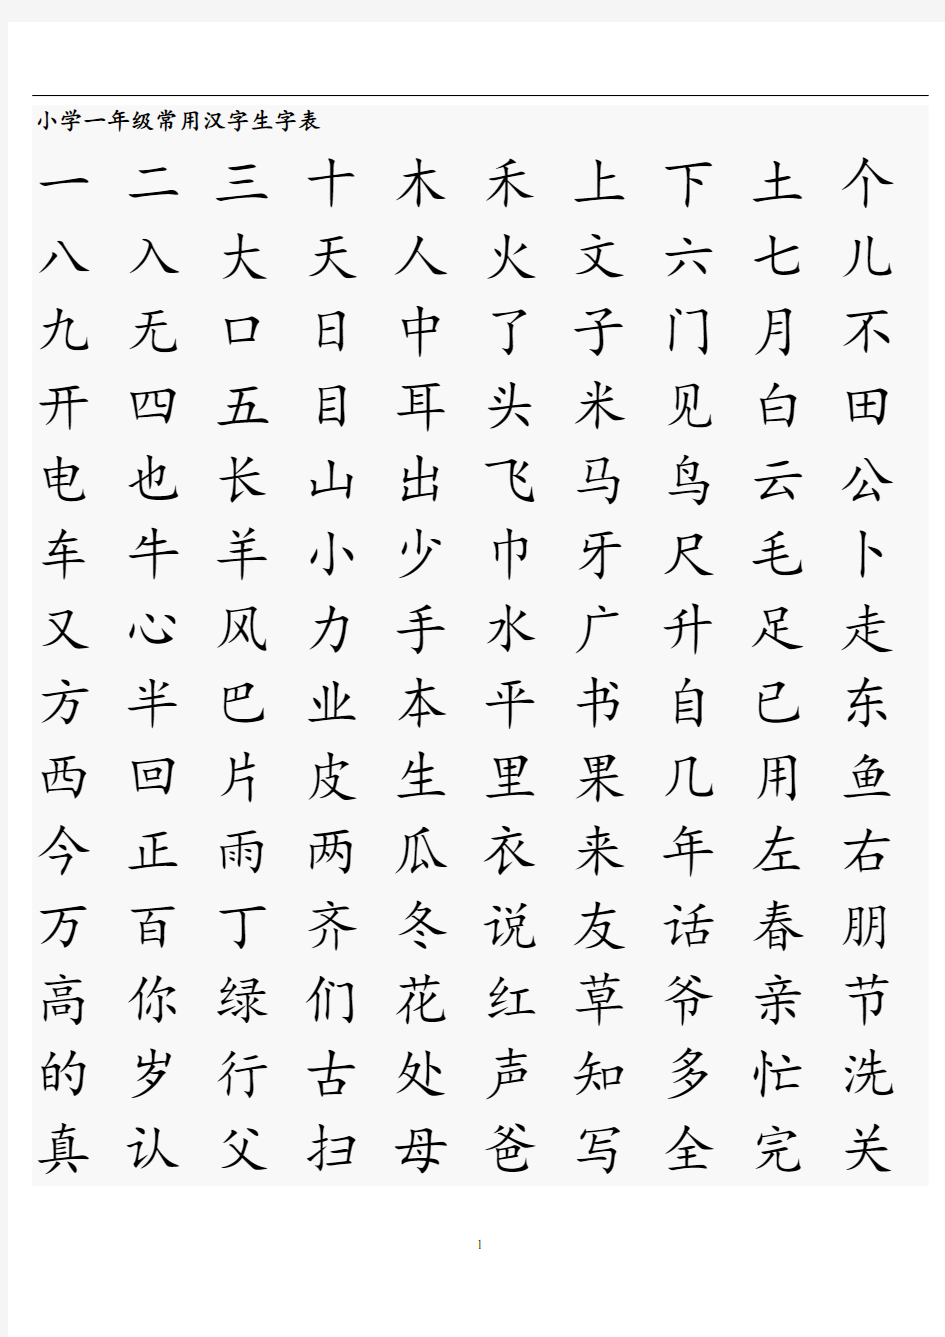 小学一年级常用汉字生字表
一 二 三 十 木 禾 上 下 土 个
八 入 大 天 人 火 文 六 七 儿
九 无 口 日 中 了 子 门 月 不
开 四 五 目 耳 头 米 见 白 田
电 也 长 山 出 飞 马 鸟 云 公
车 牛 羊 小 少 巾 牙 尺 毛 卜
又 心 风 力 手 水 广 升 足 走
方 半 巴 业 本 平 书 自 已 东
西 回 片 皮 生 里 果 几 用 鱼
今 正 雨 两 瓜 衣 来 年 左 右
万 百 丁 齐 冬 说 友 话 春 朋
高 你 绿 们 花 红 草 爷 亲 节
的 岁 行 古 处 声 知 多 忙 洗
真 认 父 扫 母 爸 写 全 完 关
1